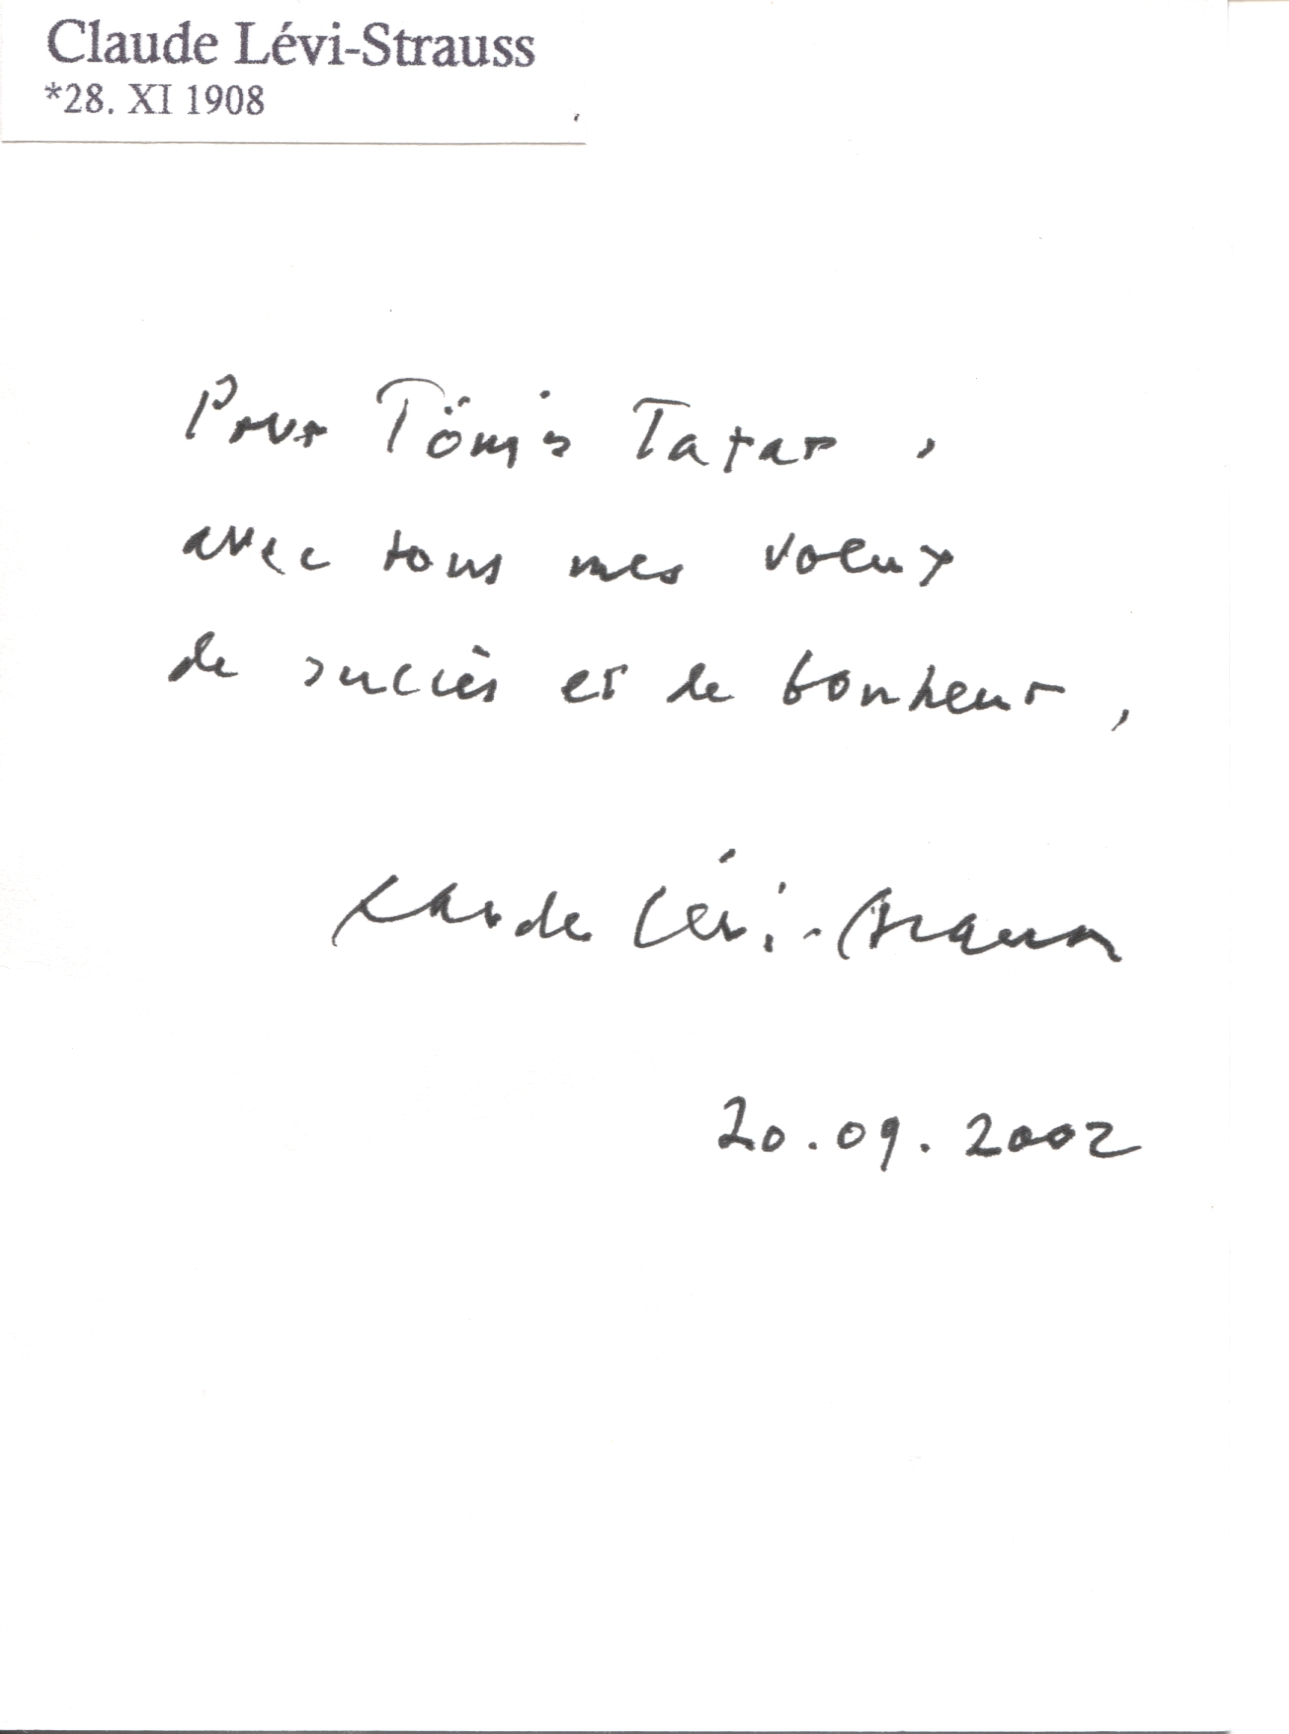 Claude Lévi-Strauss
*28. XI 1908
Pour Tönis Tatar,
avec tous mes voeux
de succès et de bonheur,
Claude Lévi-Strauss
20.09.2002